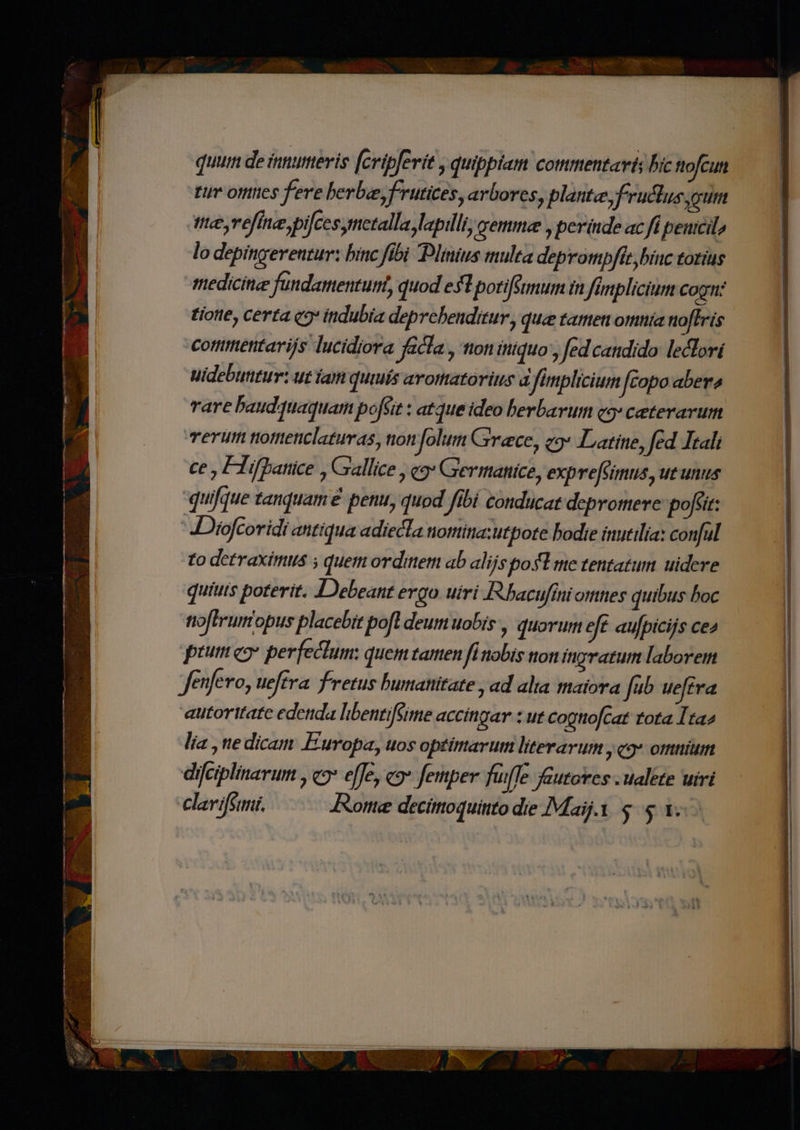 quum de innumeris ſcripſerit, quippiam commentaris hic noſcun
tur omnes fere herbæ, frutices, arbores, plantæ, fructus, gum
mæ, reſinæ, piſces, metalla, lapilli, gemmæ, perinde ac ſi penicil-
lo depingerentur: hinc ſibi Plinius multa deprompſit, hinc totius
medicinæ fundamentum, quod est potiſsimum in ſimplicium cogni
tione, certa & indubia deprehenditur, quæ tamen omnia noſtris
commentarijs lucidiora facta, non iniquo, ſed candido lectori
uidebuntur: ut iam quiuis aromatorius à ſimplicium ſcopo aber-
rare haudquaquam poſsit: atque ideo herbarum & cæterarum
rerum nomenclaturas, non ſolum Græce, & Latine, ſed Itali
ce, Hiſpanice, Gallice, & Germanice, expreſsimus, ut unus
quiſque tanquam è penu, quod ſibi conducat depromere poſsit:
Dioſcoridi antiqua adiecta nomina: utpote hodie inutilia: conſul
to detraximus; quem ordinem ab alijs post me tentatum uidere
quiuis poterit. Debeant ergo uiri Rhacuſini omnes quibus hoc
noſtrum opus placebit poſt deum uobis, quorum eſt auſpicijs cœ-
ptum & perfectum: quem tamen ſi nobis non ingratum laborem
ſenſero, ueſtra fretus humanitate, ad alia maiora ſub ueſtra
autoritate edenda libentiſsime accingar: ut cognoſcat tota Ita-
lia, ne dicam Europa, uos optimarum literarum, & omnium
diſciplinarum, & eſſe, & ſemper fuiſſe fautores. ualete uiri
clariſsimi. Romæ decimoquinto die Maij. 1 5 5 1.